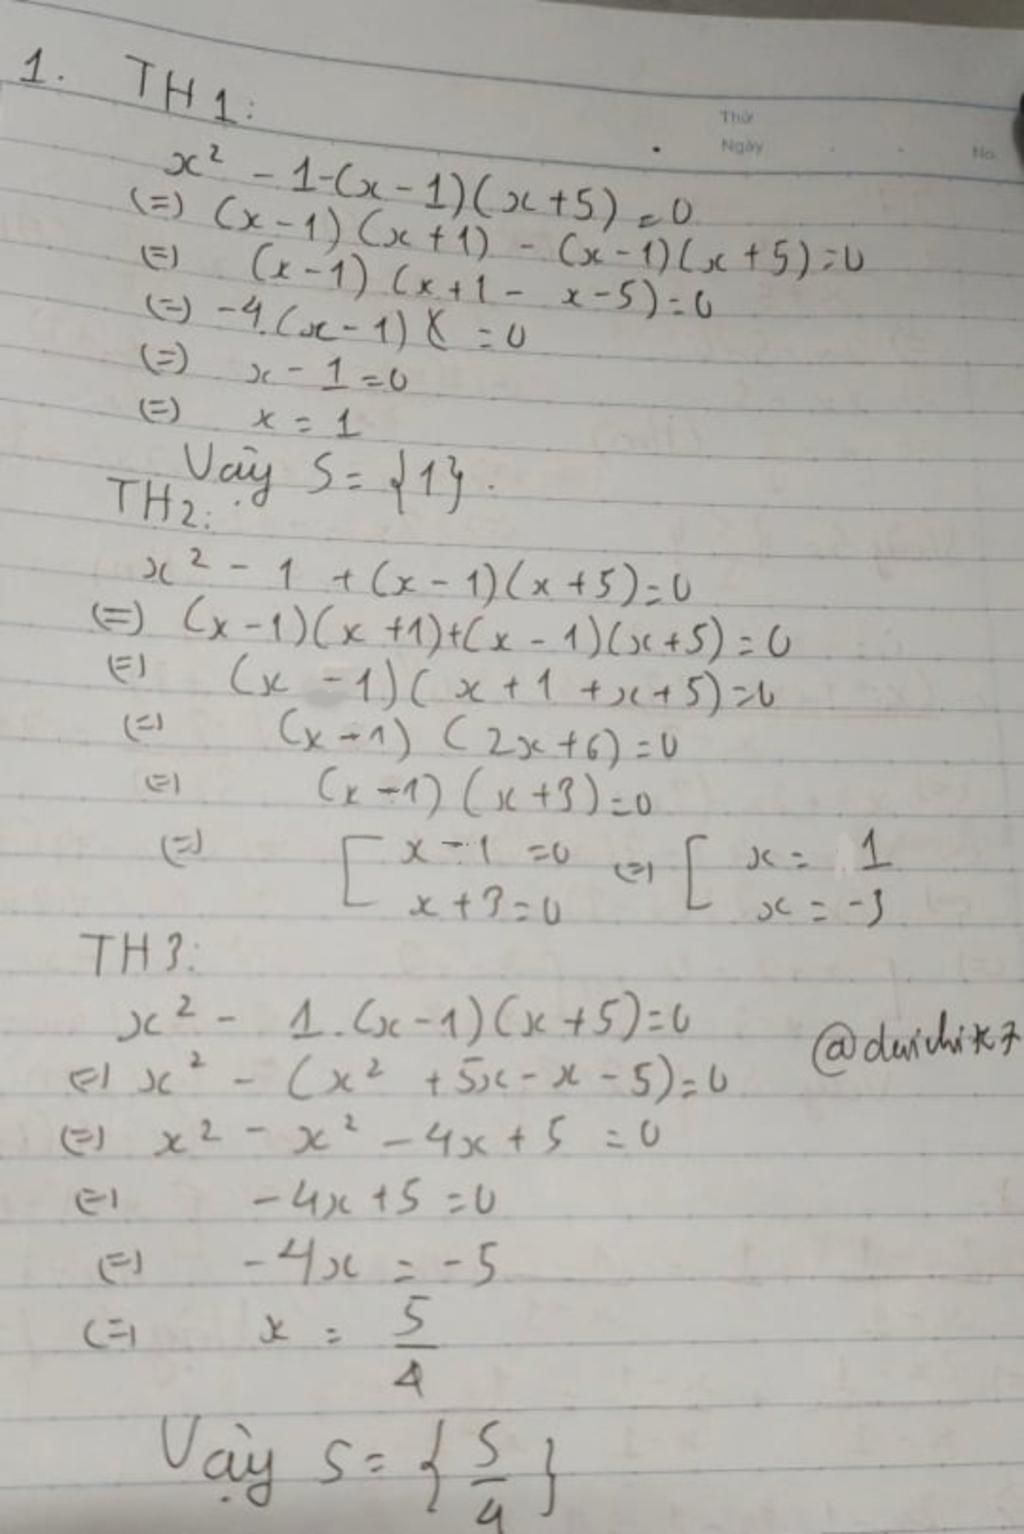 Thứ
Ngày
No.
1. TH1:
x² - 1-(x-1)(x+5)=0
(=) (x-1)(x+1) - (x-1)(x+5)=0
(=) (x-1)(x+1 - x-5)=0
(=) -4.(x-1) = 0
(=) x - 1 =0
(=) x = 1
Vậy S= {1}.
TH2:
x² - 1 +(x-1)(x+5)=0
(=) (x-1)(x+1)+(x-1)(x+5)=0
(=) (x -1)(x+1 +x+5)=0
(=) (x-1) (2x+6)=0
(=) (x-1)(x+3)=0
(=) [ x-1 =0 (=) [ x = 1
x+3=0 x = -3
TH3:
x² - 1.(x-1)(x+5)=0
@duichikz
(=) x² - (x² +5x-x-5)=0
(=) x² - x² -4x+5 =0
(=) -4x+5 =0
(=) -4x = -5
(=) x = 5/4
Vậy S= {5/4}